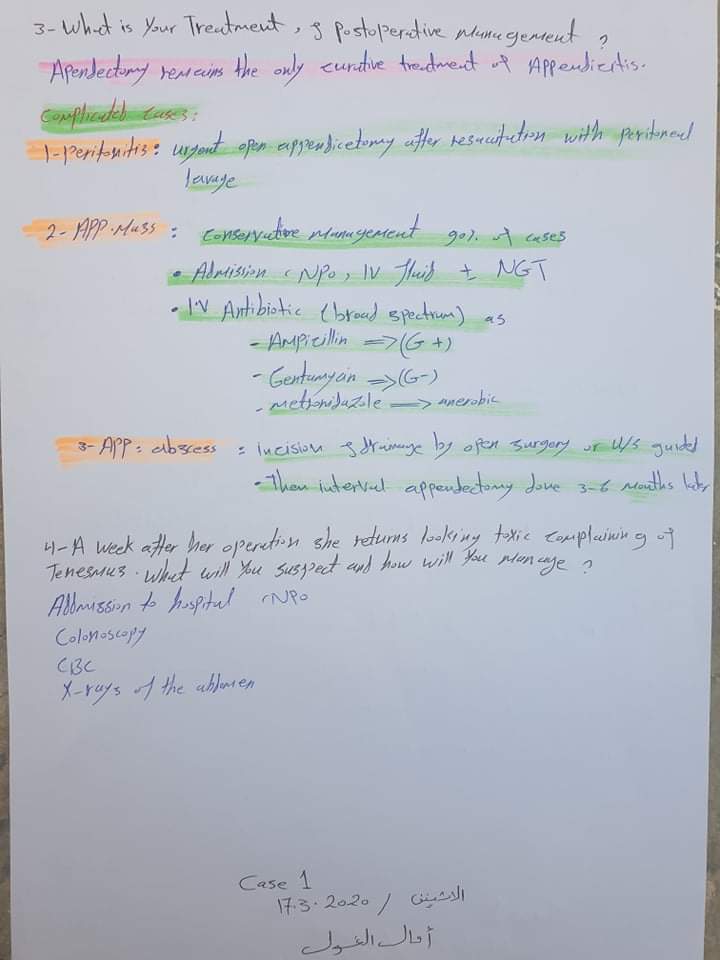 3- What is Your Treatment, & Postoperative Management ?
Apendectomy remains the only curative treatment of Appendicitis.
Complicated cases:
1-Peritonitis: urgent open appendicetomy after resucitution with peritoneal
lavage
2- APP.Mass : Conservative management 90% of cases
• Admission, NPO, IV fluid ± NGT
• IV Antibiotic (broad spectrum) as
- AMPicillin => (G+)
- Gentamycin => (G-)
- metronidazole => anerobic
3- APP: abscess : incision & drainage by open surgery or U/S guided
• Then interval appendectomy done 3-6 months later
4- A week after her operation she returns looking toxic complaining of
Tenesmus. What will You suspect and how will You manage ?
Addmission to hospital, NPO
Colonoscopy
CBC
X-rays of the abdomen
Case 1
17.3.2020 / الاثنين
أمال الغول